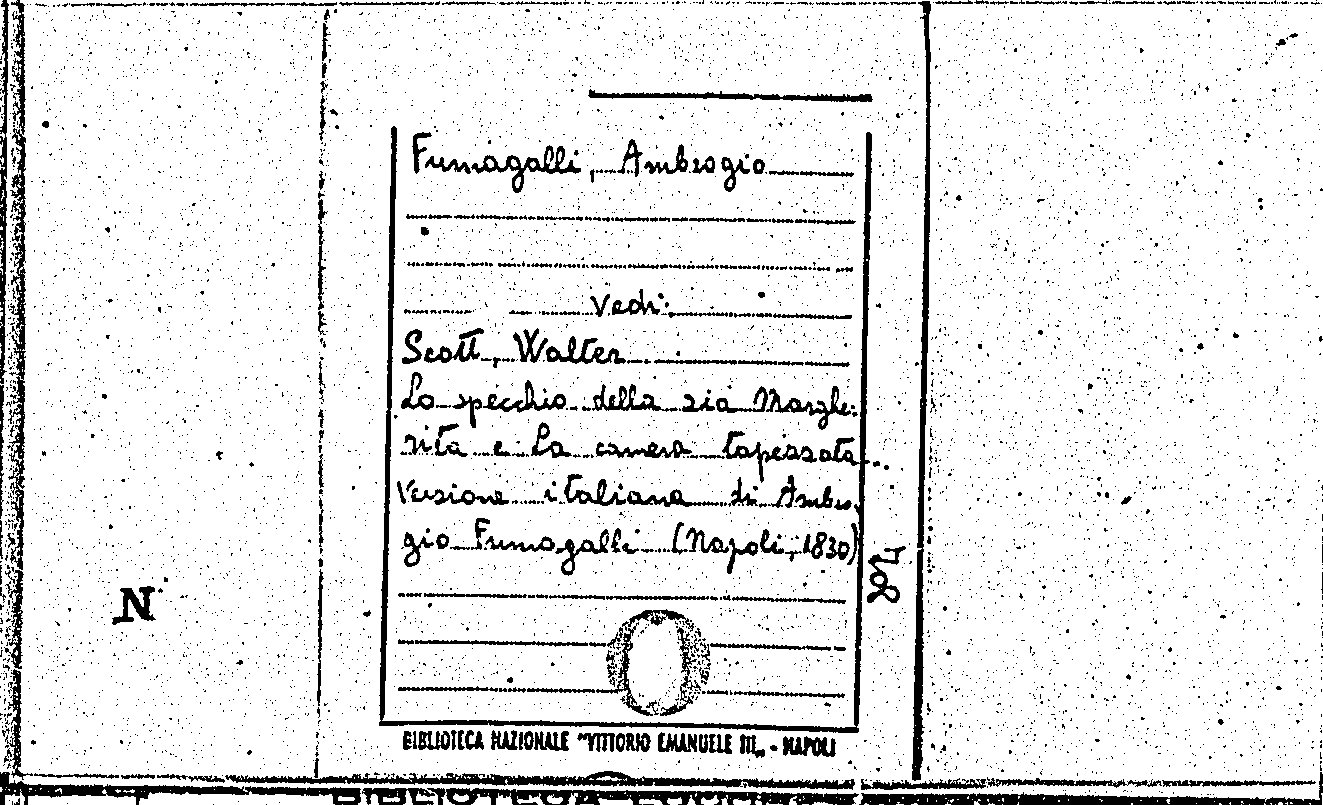 Fumagalli, Ambrogio
Vedi:
Scott, Walter
Lo specchio della zia Marghe-
rita e La camera tapezzata...
Versione italiana di Ambro-
gio Fumagalli (Napoli, 1830)
N
BIBLIOTECA NAZIONALE "VITTORIO EMANUELE III" - NAPOLI
BIBLIOTECA